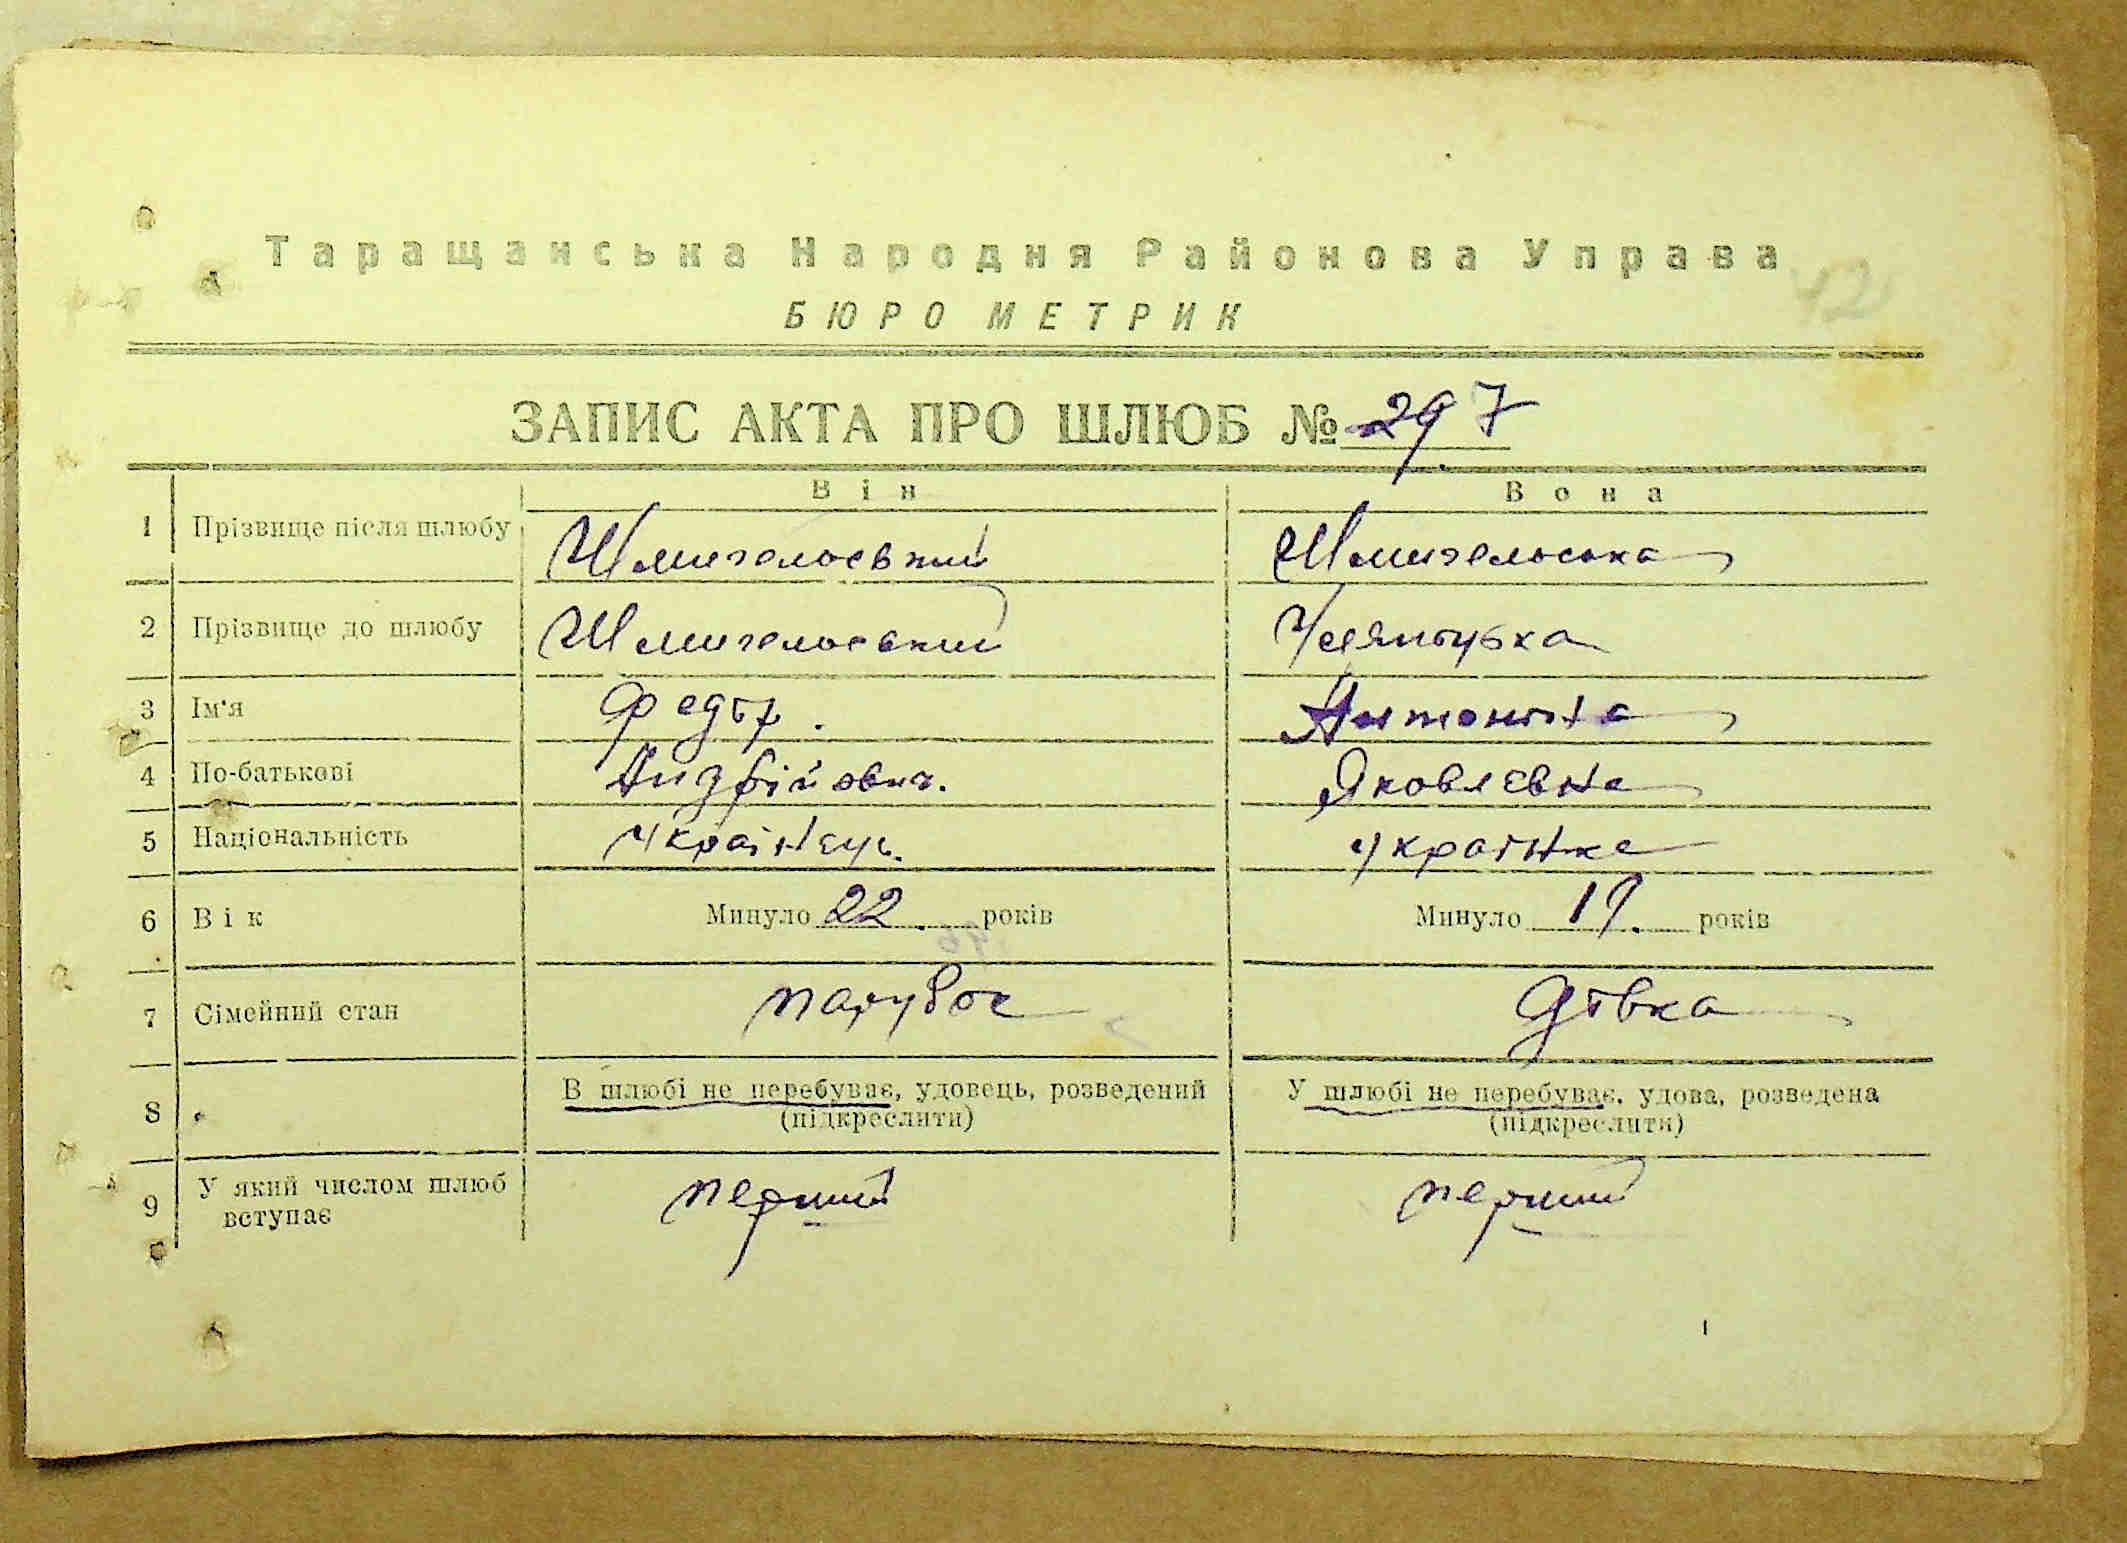 Таращанська Народня Районова Управа
42
БЮРО МЕТРИК
ЗАПИС АКТА ПРО ШЛЮБ № 297
Він Вона
1 Прізвище після шлюбу Шмигельський Шмигельська
2 Прізвище до шлюбу Шмигельський
3 Ім'я Федір. Антоніна
4 По-батькові Андрійович. Яковлєвна
5 Національність Українець. Українка
6 Вік Минуло 22. років Минуло 19. років
7 Сімейний стан парубок дівка
8 В шлюбі не перебуває, удовець, розведений У шлюбі не перебуває, удова, розведена
(підкреслити) (підкреслити)
9 У який числом шлюб перший перший
вступає